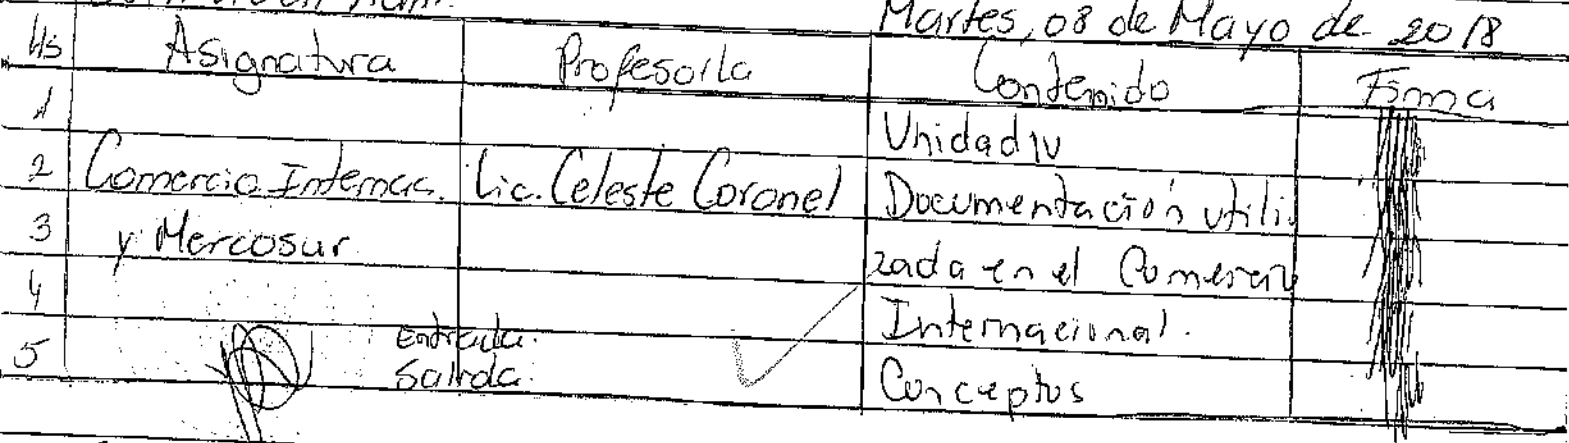 Martes, 08 de Mayo de 2018
Hs Asignatura Profesor/a Contenido Firma
1 Unidad IV
2 Comercio Internac. Lic. Celeste Coronel Documentación utili
3 y Mercosur zada en el Comercio
4 Internacional.
Entrada:
5 Salida: Conceptos